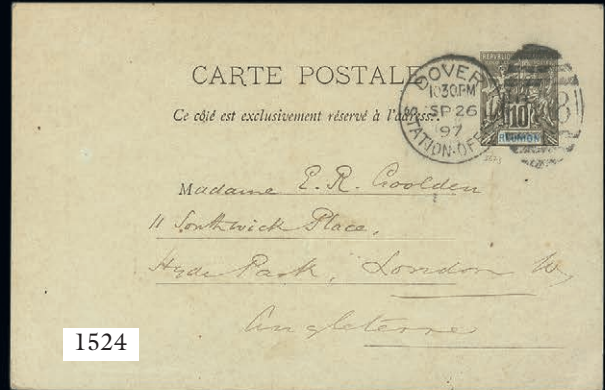 CARTE POSTALE
Ce côté est exclusivement réservé à l'adresse.
REPUBLIQUE
10
RÉUNION
DOVER
10 30 PM
SP 26
97
STATION-OFF
Madame E. R. Goolden
11 Southwick Place,
Hyde Park, London W,
Angleterre
1524